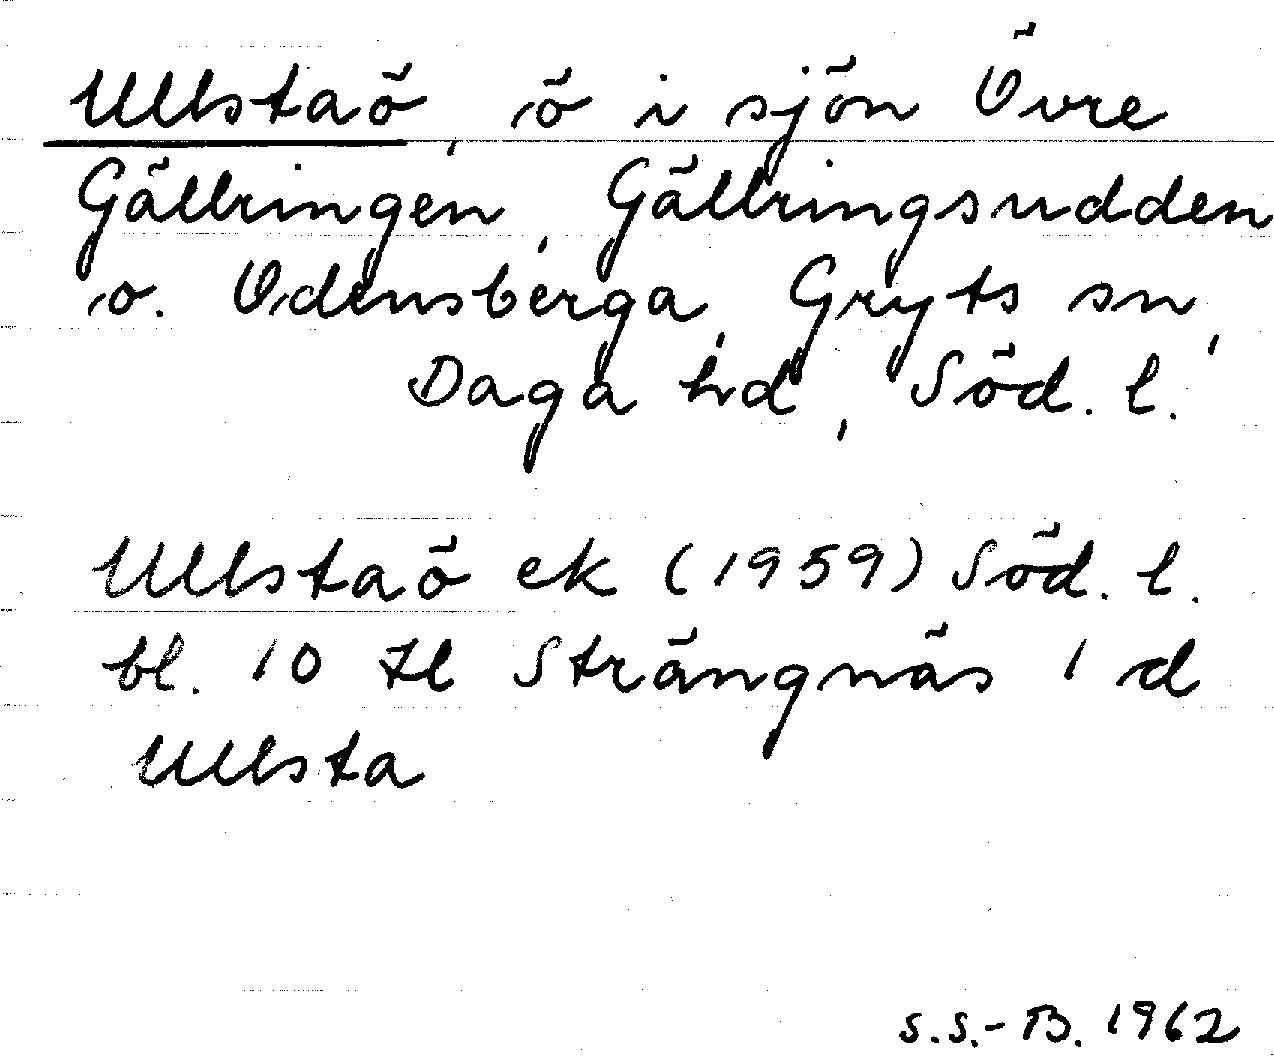 Ullstaö, ö i sjön Övre
Gällringen, Gällringsudden
o. Odensberga, Gryts sn,
Daga hd, Söd. l.
Ullstaö ek (1959) Söd. l.
bl. 10 tl Strängnäs 1 d
Ullsta
S.S.-B. 1962